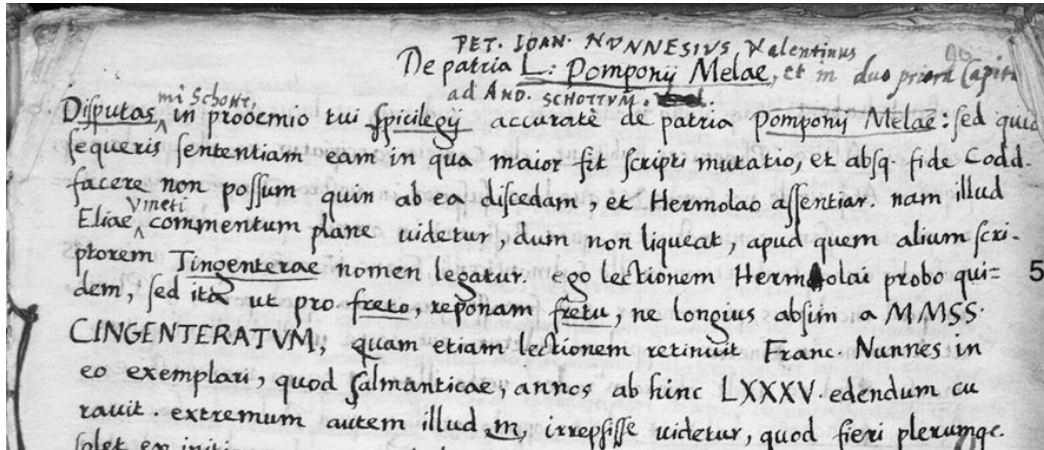 PET. IOAN. NVNNESIVS Valentinus
De patria L: Pomponij Melae, et in duo priora Capita
ad AND. SCHOTTVM.
mi Schotte,
Disputas in prooemio tui Spicilegij accuratè de patria Pomponij Melae: sed quia
sequeris sententiam eam in qua maior fit scripti mutatio, et absq. fide Codd.
facere non possum quin ab ea discedam, et Hermolao assentiar. nam illud
Vineti
Eliae commentum plane uidetur, dum non liqueat, apud quem alium scri-
ptorem Tingenterae nomen legatur. ego lectionem Hermolai probo qui=
dem, sed ita ut pro freto, reponam fretu, ne longius absim a M.MSS.
5
CINGENTERATVM, quam etiam lectionem retinuit Franc. Nunnes in
eo exemplari, quod Salmanticae, annos ab hinc LXXXV. edendum cu
rauit. extremum autem illud m, irrepsisse uidetur, quod fieri plerumqe.
solet ex initi